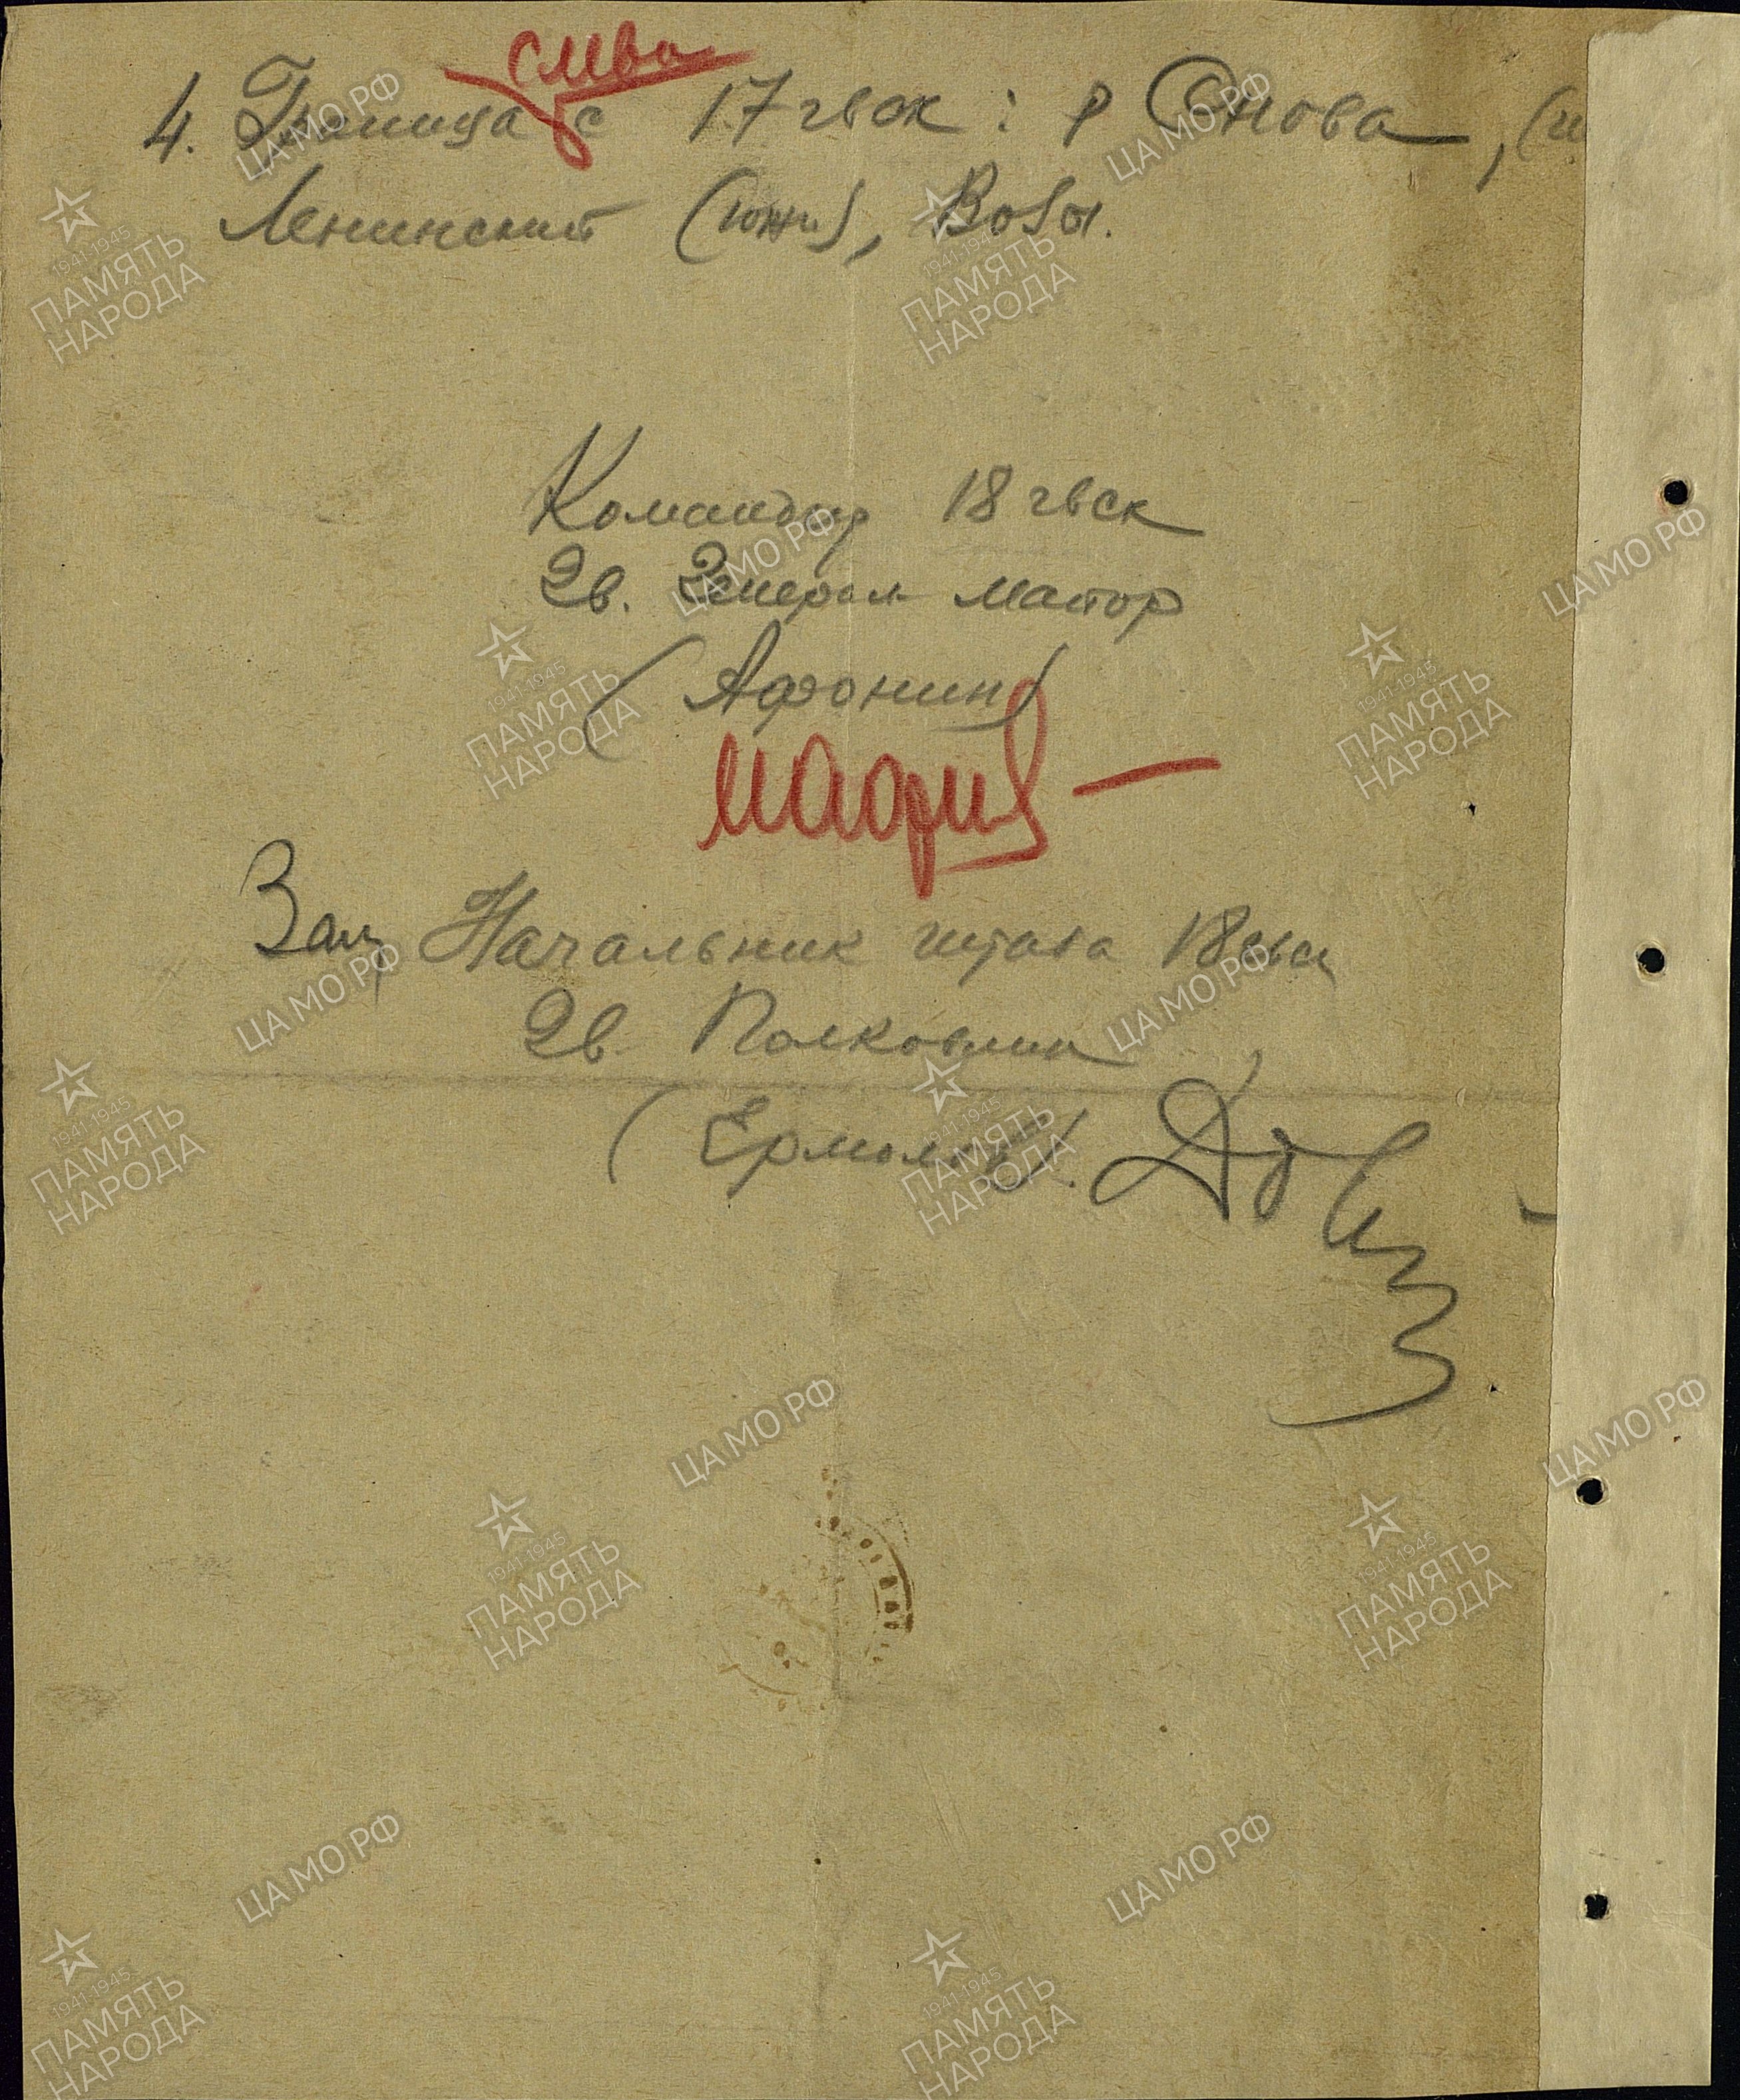 слева
4. Граница с 17 гвск: р Снова, (и
Ленинский (южн),
Командир 18 гвск
Гв. Генерал Майор
(Афонин)
Зам Начальник штаба 18 гвск
Гв. Полковник
(Ермолов).
ЦА МО РФ
1941-1945
ПАМЯТЬ
НАРОДА